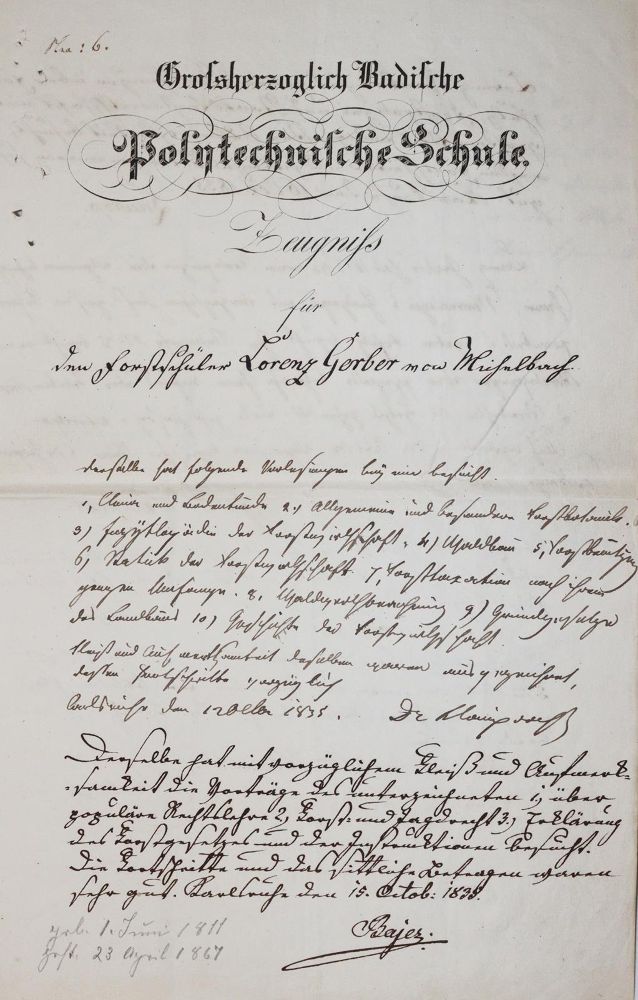 Nro: 6.
Groſsherzoglich Badiſche
Polytechniſche Schule.
Zeugniſs
für
den Forstschüler Lorenz Gerber von Michelbach.
Derselbe hat folgende Vorlesungen bey mir besucht.
1, Clima und Bodenkunde 2,) Allgemeine und besondere Forstbotanik.
3) Encyklopädie der Forstwissenschaft. 4) Waldbau 5, Forstbenutzung
6, Statik der Forstwissenschaft 7, Forsttaxation nach ihrem
ganzen Umfange. 8, Waldwerthberechnung 9) Grundsätze
des Landbaus 10) Geschichte der Forstwissenschaft.
Fleiß und Aufmerksamkeit desselben waren ausgezeichnet,
dessen Fortschritte vorzüglich
Carlsruhe den 12 1835.
Derselbe hat mit vorzüglichem Fleiß und Aufmerk-
samkeit die Vorträge des unterzeichneten 1, über
populäre Rechtslehre 2, Forst- und Jagdrecht 3, Erklärung
des Forstgesetzes und der Instruktionen besucht.
Die Fortschritte und das sittliche Betragen waren
sehr gut. Karlsruhe den 15. Octob: 1835.
Bajer.
geb. 1. Juni 1811
gest. 23 April 1867